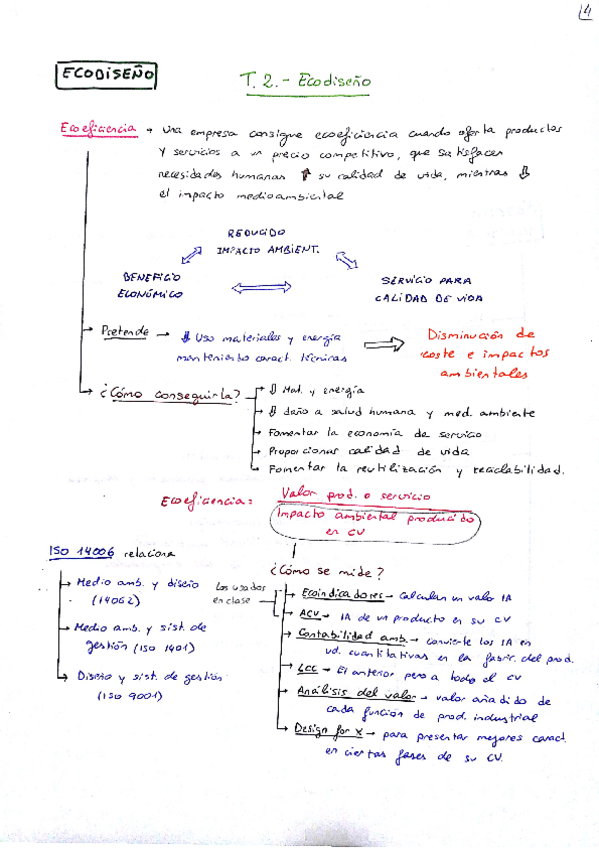 4
ECODISEÑO
T.2.- Ecodiseño
Ecoeficiencia → Una empresa consigue ecoeficiencia cuando oferta productos
y servicios a un precio competitivo, que satisfacen
necesidades humanas ⇑ su calidad de vida, mientras ⇓
el impacto medioambiental
REDUCIDO
IMPACTO AMBIENT.
BENEFICIO
ECONÓMICO
SERVICIO PARA
CALIDAD DE VIDA
Pretende → ⇓ Uso materiales y energía
manteniento caract. técnicas
Disminución de
coste e impactos
ambientales
¿Cómo conseguirla?
⇓ Mat. y energía
⇓ daño a salud humana y med. ambiente
Fomentar la economía de servicio
Proporcionar calidad de vida
Fomentar la reutilización y reciclabilidad.
Ecoeficiencia = Valor prod. o servicio
Impacto ambiental producido
en CV
ISO 14006 relaciona
Medio amb. y diseño
(14062)
Medio amb. y sist. de
gestión (ISO 1401)
Diseño y sist. de gestión
(ISO 9001)
¿Cómo se mide?
Los usados
en clase
Ecoindicadores → Calculan un valor IA
ACV → IA de un producto en su CV
Contabilidad amb. → convierte los IA en
ud. cuantitativas en la fabric. del prod.
LCC → El anterior pero a todo el CV
Análisis del valor → valor añadido de
cada función de prod. industrial
Design for X → para presentar mejores caract.
en ciertas fases de su CV.